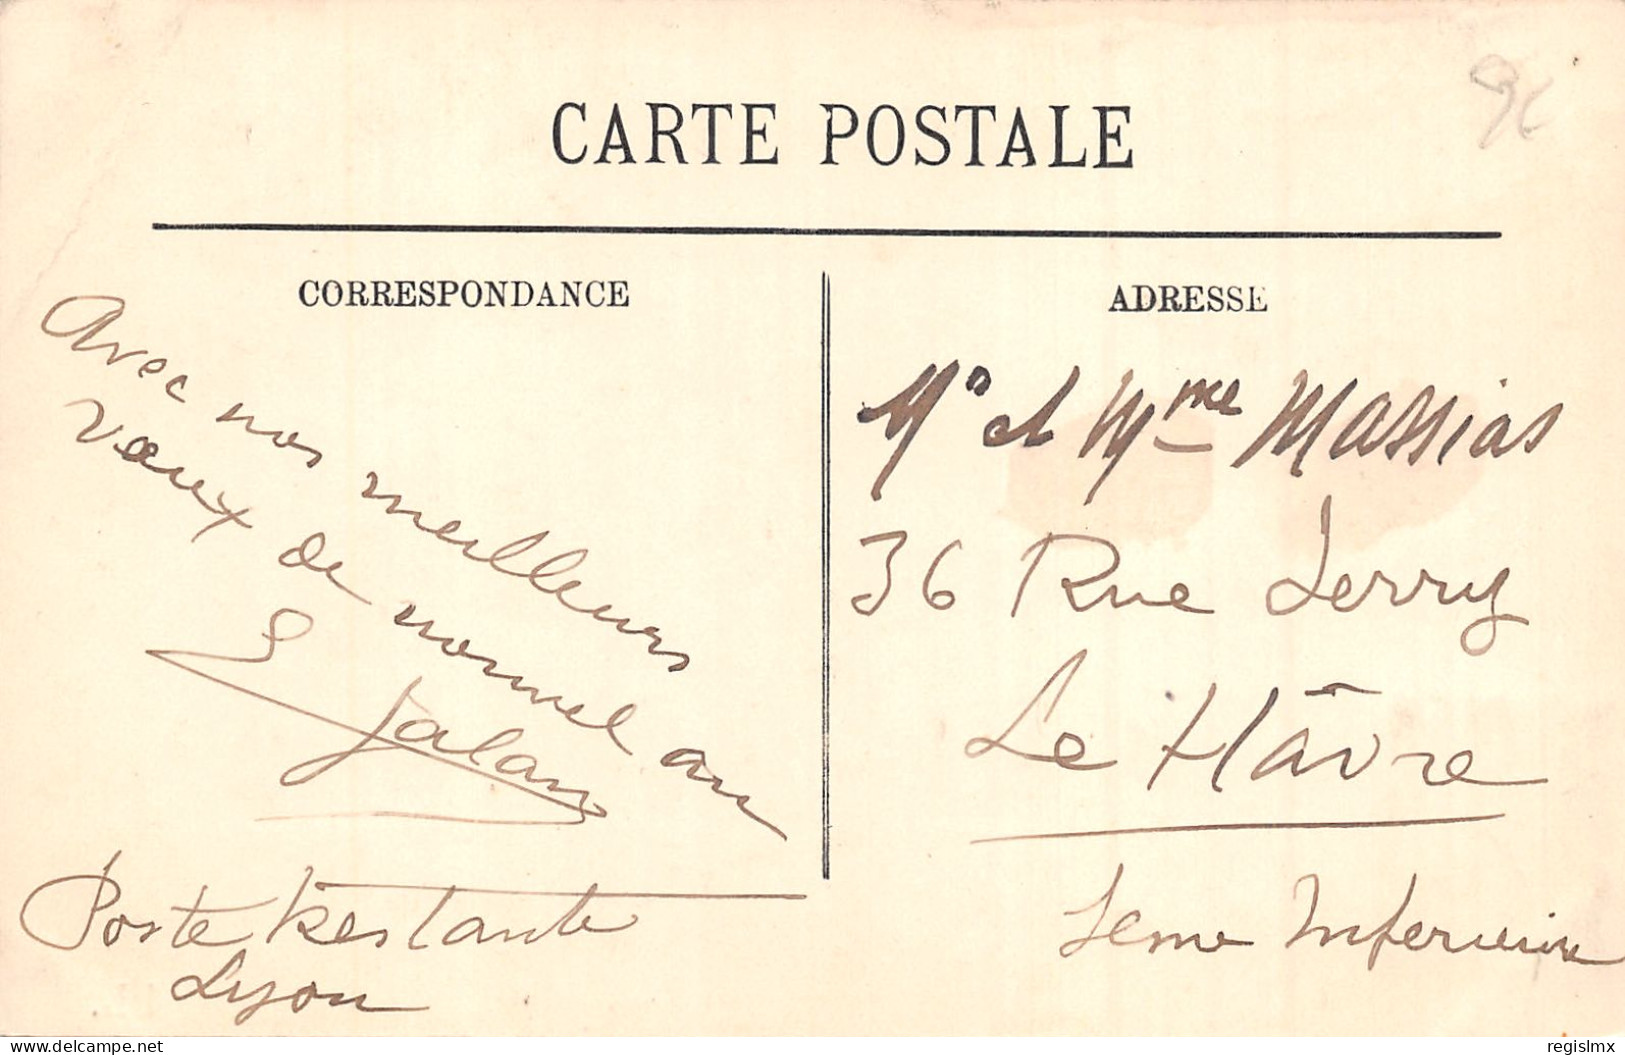 CARTE POSTALE
CORRESPONDANCE
Avec nos meilleurs
vœux de nouvel an
Poste Restante
Lyon
ADRESSE
Mr et Mme Massias
36 Rue Jerry
Le Hâvre
Seine Inferieure
www.delcampe.net
regislmx